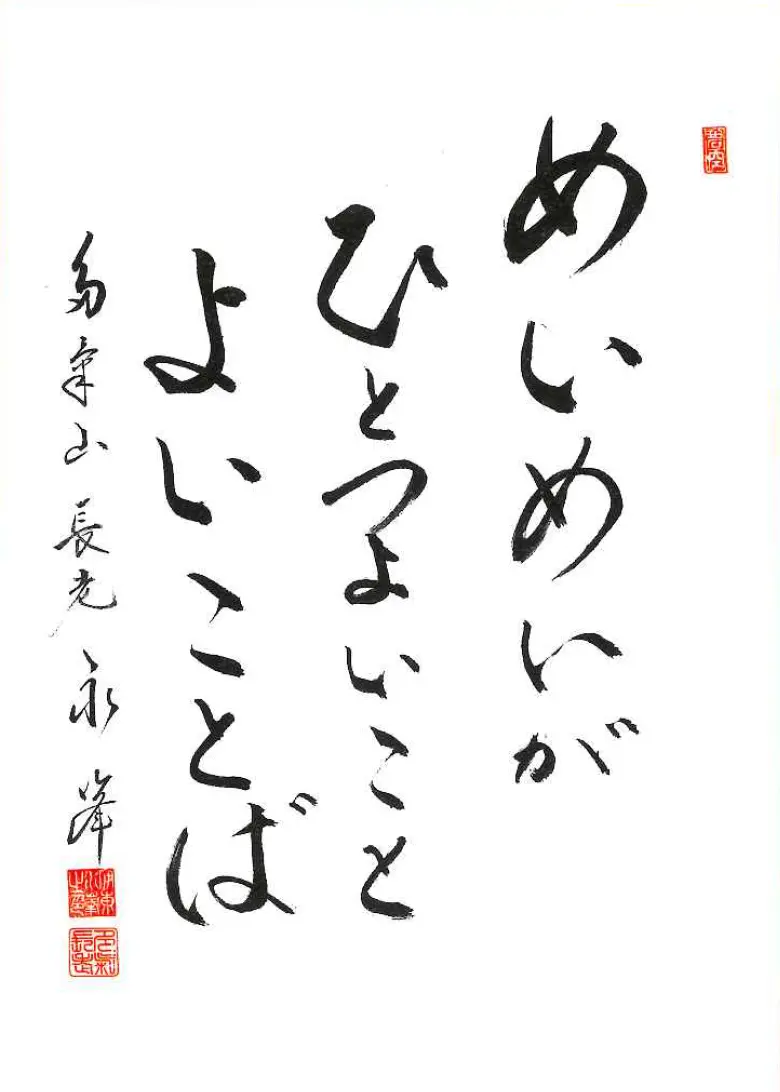 めいめいが
ひとつよいこと
よいことば
多氣山 長老 永峰